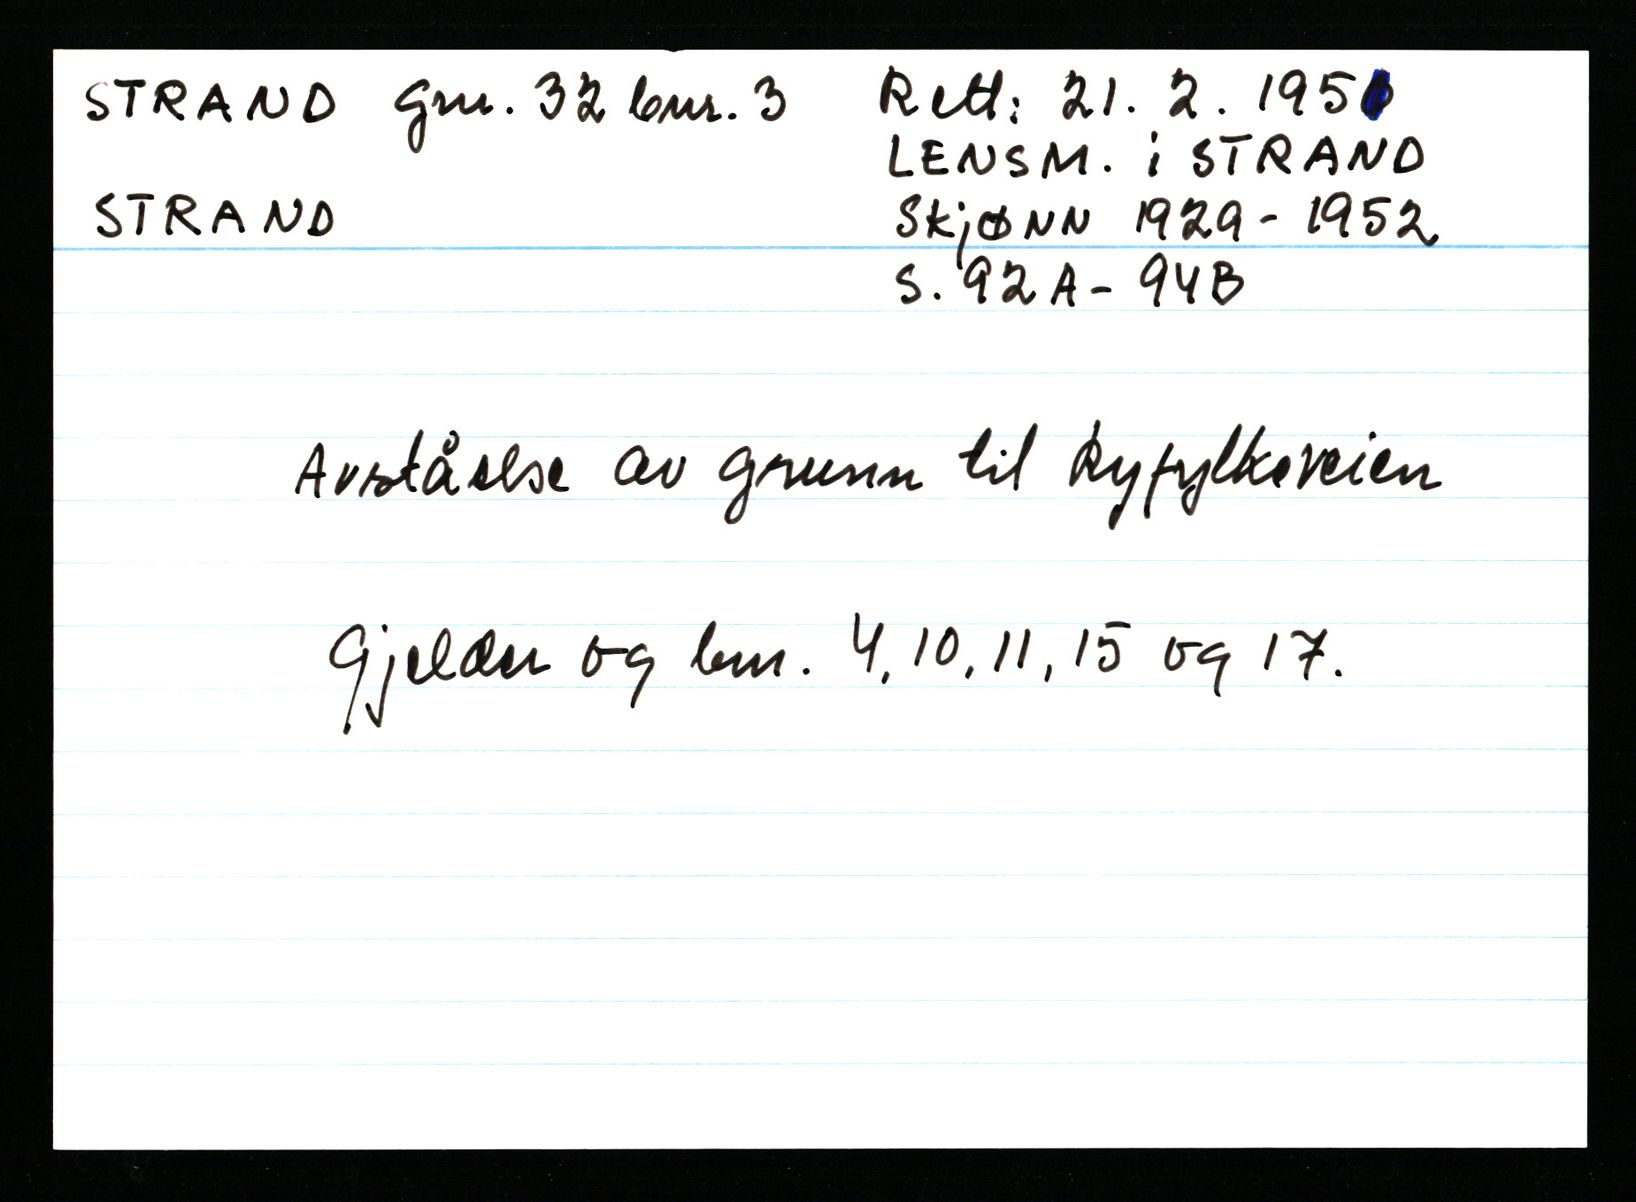 STRAND gnr. 32 bnr. 3
STRAND
Rett: 21. 2. 195
LENSM. i STRAND
Skjønn 1929 - 1952
S. 92 A - 94 B
Avståelse av grunn til Ryfylkeveien
Gjelder og bnr. 4, 10, 11, 15 og 17.